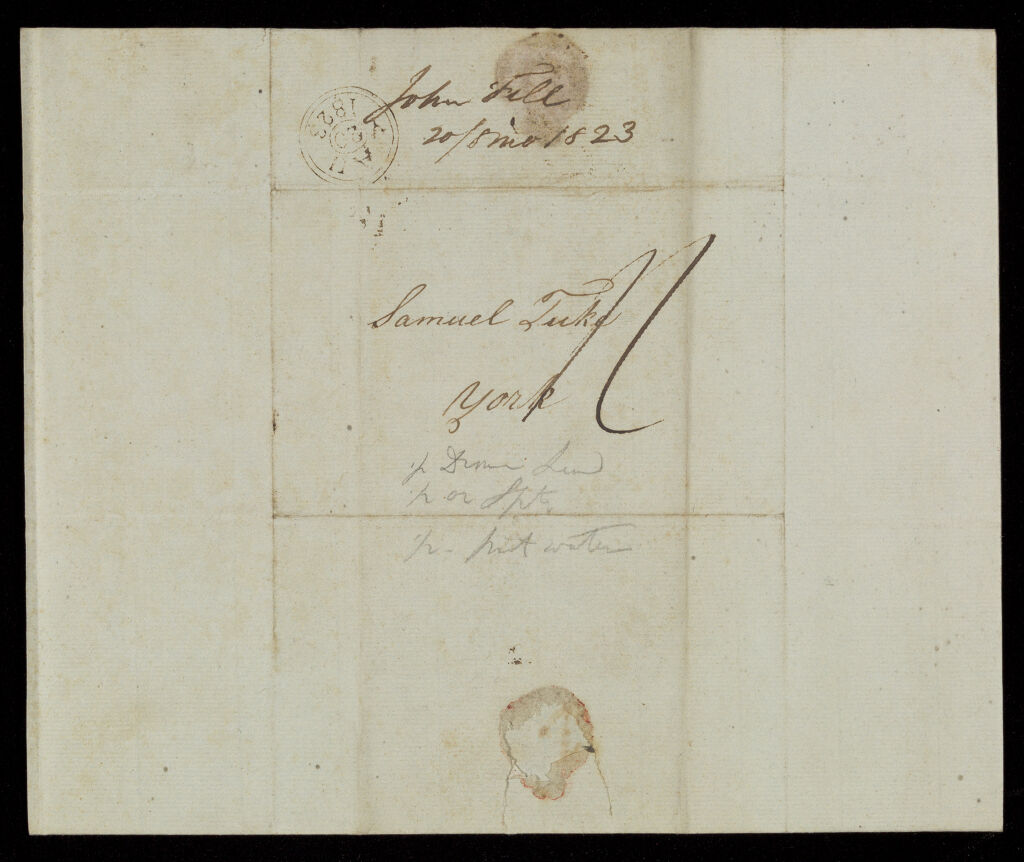 John Fell
20/8 mo 1823
AU
20
1823
Samuel Tuke
York
11
or
pint water